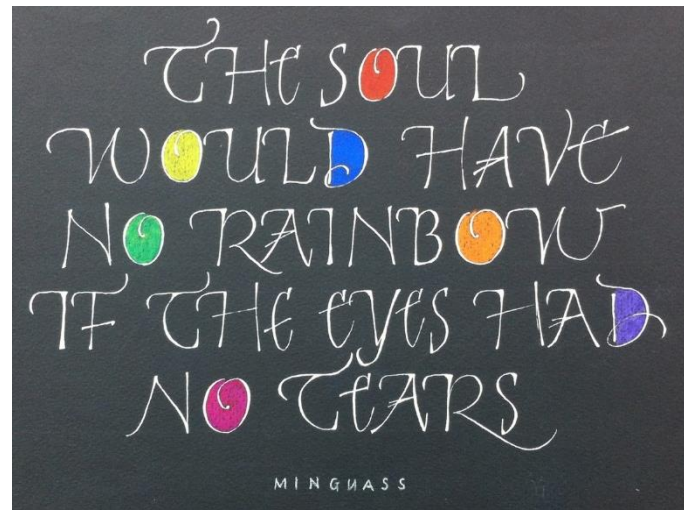 THE SOUL
WOULD HAVE
NO RAINBOW
IF THE EYES HAD
NO TEARS
MINGUASS